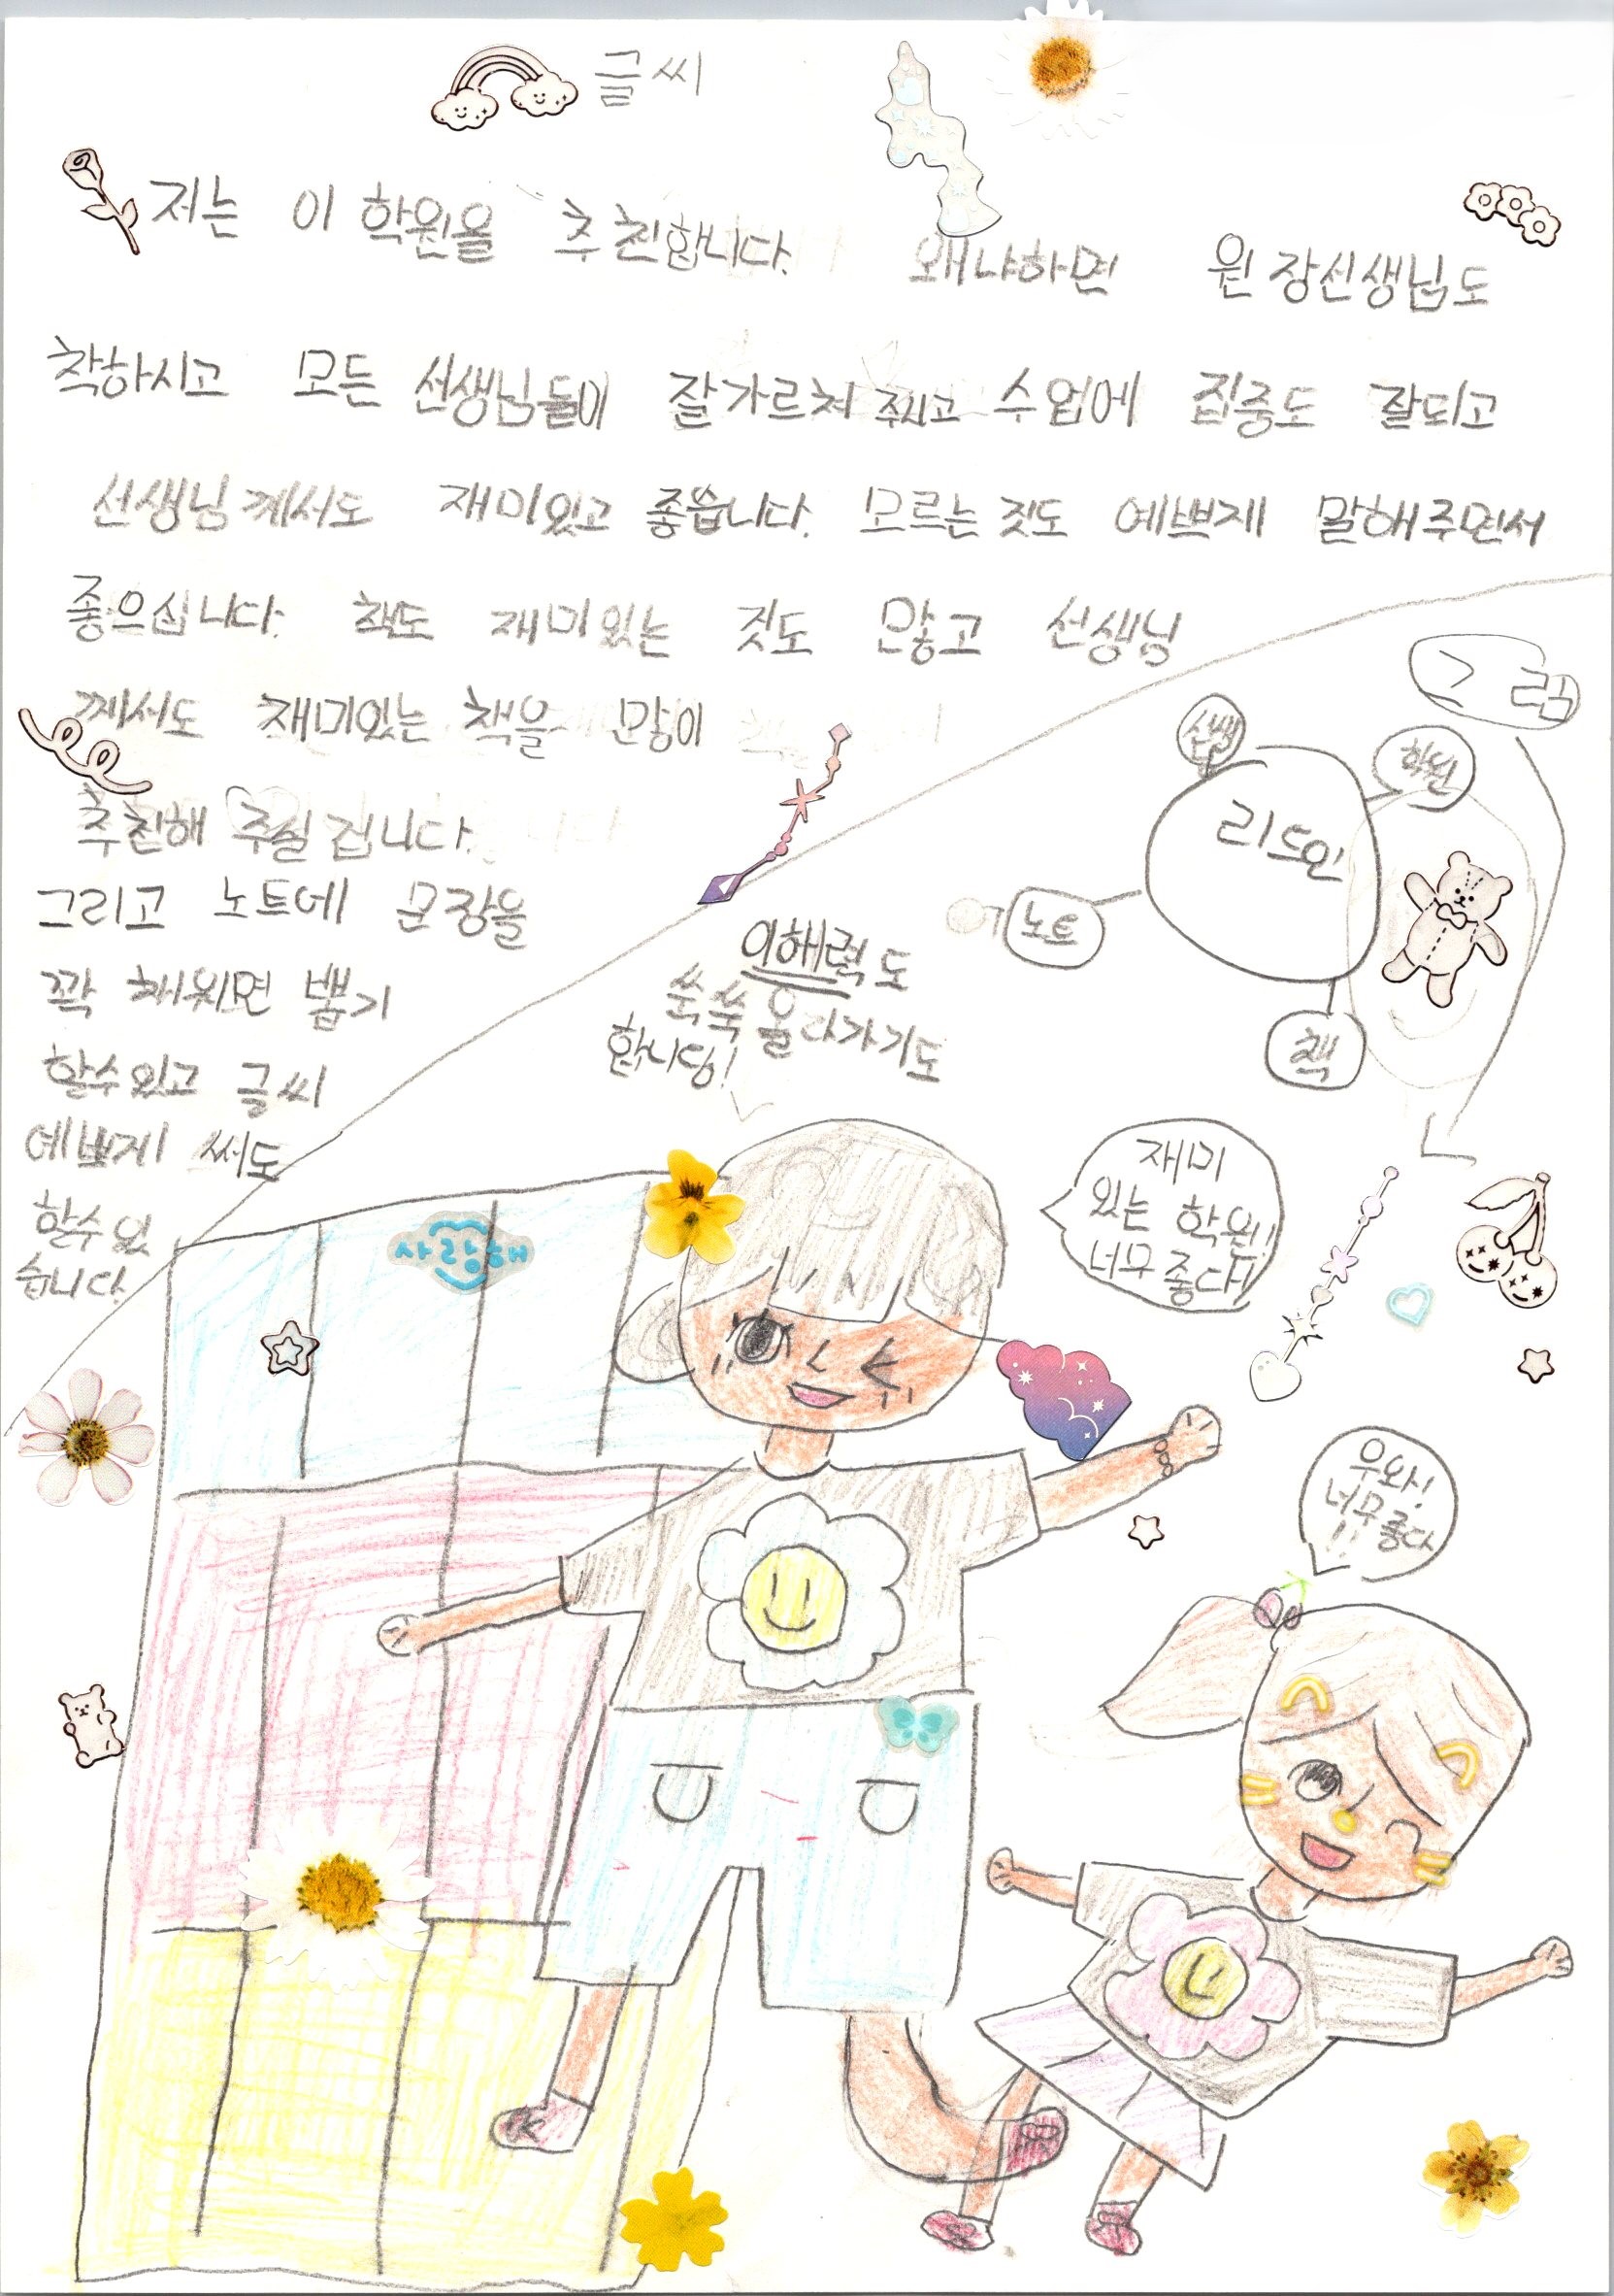 글씨
저는 이 학원을 추천합니다. 왜냐하면 원장선생님도
착하시고 모든 선생님들이 잘가르쳐 주시고 수업에 집중도 잘되고
선생님께서도 재미있고 좋습니다. 모르는 것도 예쁘게 말해주면서
좋으십니다. 책도 재미있는 것도 많고 선생님
께서도 재미있는 책을 많이
추천해 주실 겁니다.
그리고 노트에 문장을
꽉 채우면 뽑기
할수있고 글씨
예쁘게 써도
할수있
습니다.
그림
선쌤
학원
리드인
노트
책
이해력도
쑥쑥 올라가기도
합니당!
재미
있는 학원!
너무 좋다!
사랑해
우와!
너무 좋다
!!